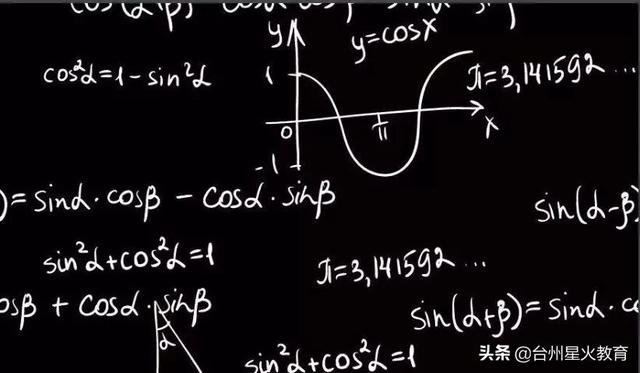 y
y=cosx
cos²α=1-sin²α
1
π=3,141592...
0
π
x
-1
)=sinα·cosβ-cosα·sinβ
sin(α-β)
sin²α+cos²α=1
π=3,141592...
osβ+cosα·sinβ
sin(α+β)=sinα·co
α
sin²α+cos²α=1
头条 @台州星火教育